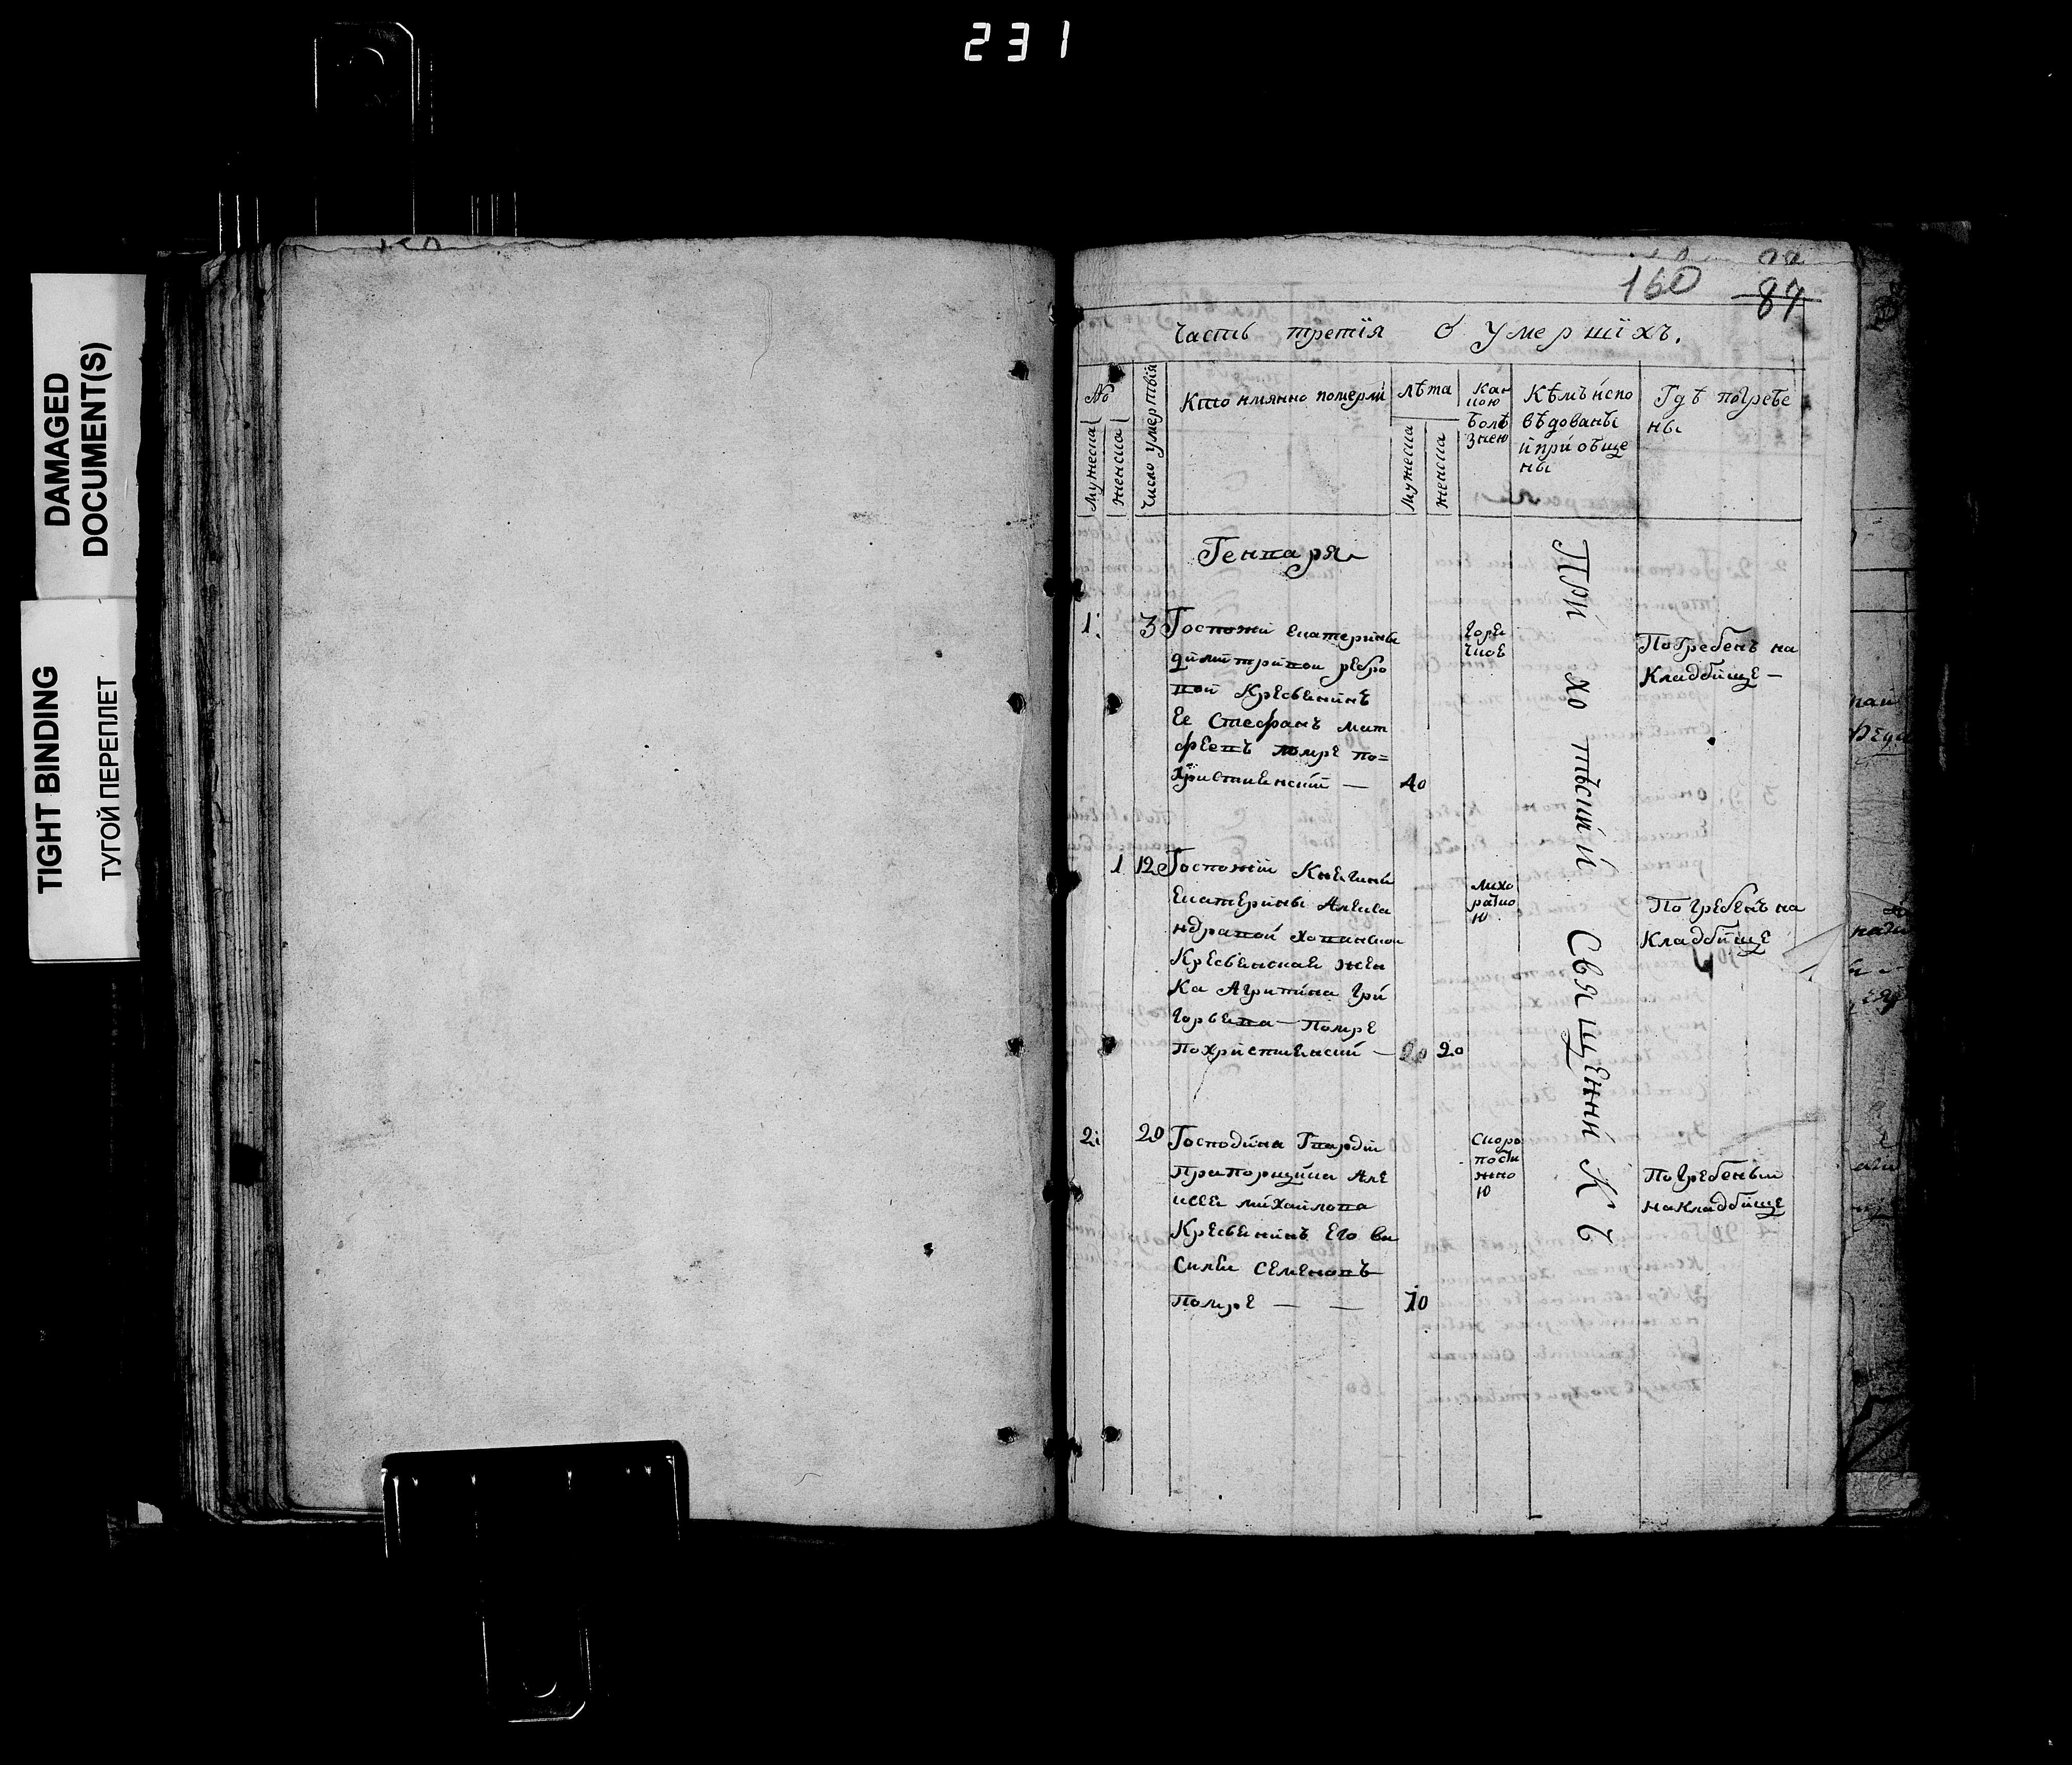 231
DAMAGED
DOCUMENT(S)
TIGHT BINDING
ТУГОЙ ПЕРЕПЛЕТ
160
87
Часть третїя О умершїхъ.
№
Мужеска
женска
Число умертвїя
Кто имянно померли
лѣта
Мужеска
женска
Какою
болѣ
знею
Кѣмъ испо
вѣдованы
и приобще
ны
Гдѣ погребе
ны
Генваря
1. 3 Госпожи екатерины
димитривои ребро
вои Кресьенинъ
Ее Стефанъ мат
феевъ помре по=
христиенский — 40
горе
чкое
Погребенъ на
Кладбище —
1 12 Госпожи Кнегини
Екатерины Алекса
ндравой хованскои
Кресьенская жен
ка Агрипина гри
горьева — Помре
похристиенский — 20 20
лихо
ратко
ю
Погребенъ на
Кладбище
2. 20 Господина Гвардии
Прапорщика Але
ксея михаилова
Кресьенинъ Его ва
силеи семеновъ
Помре — — 70
Скоро
пости
жно
ю
Погребеныи
на кладбище
Прихотьский Священникъ